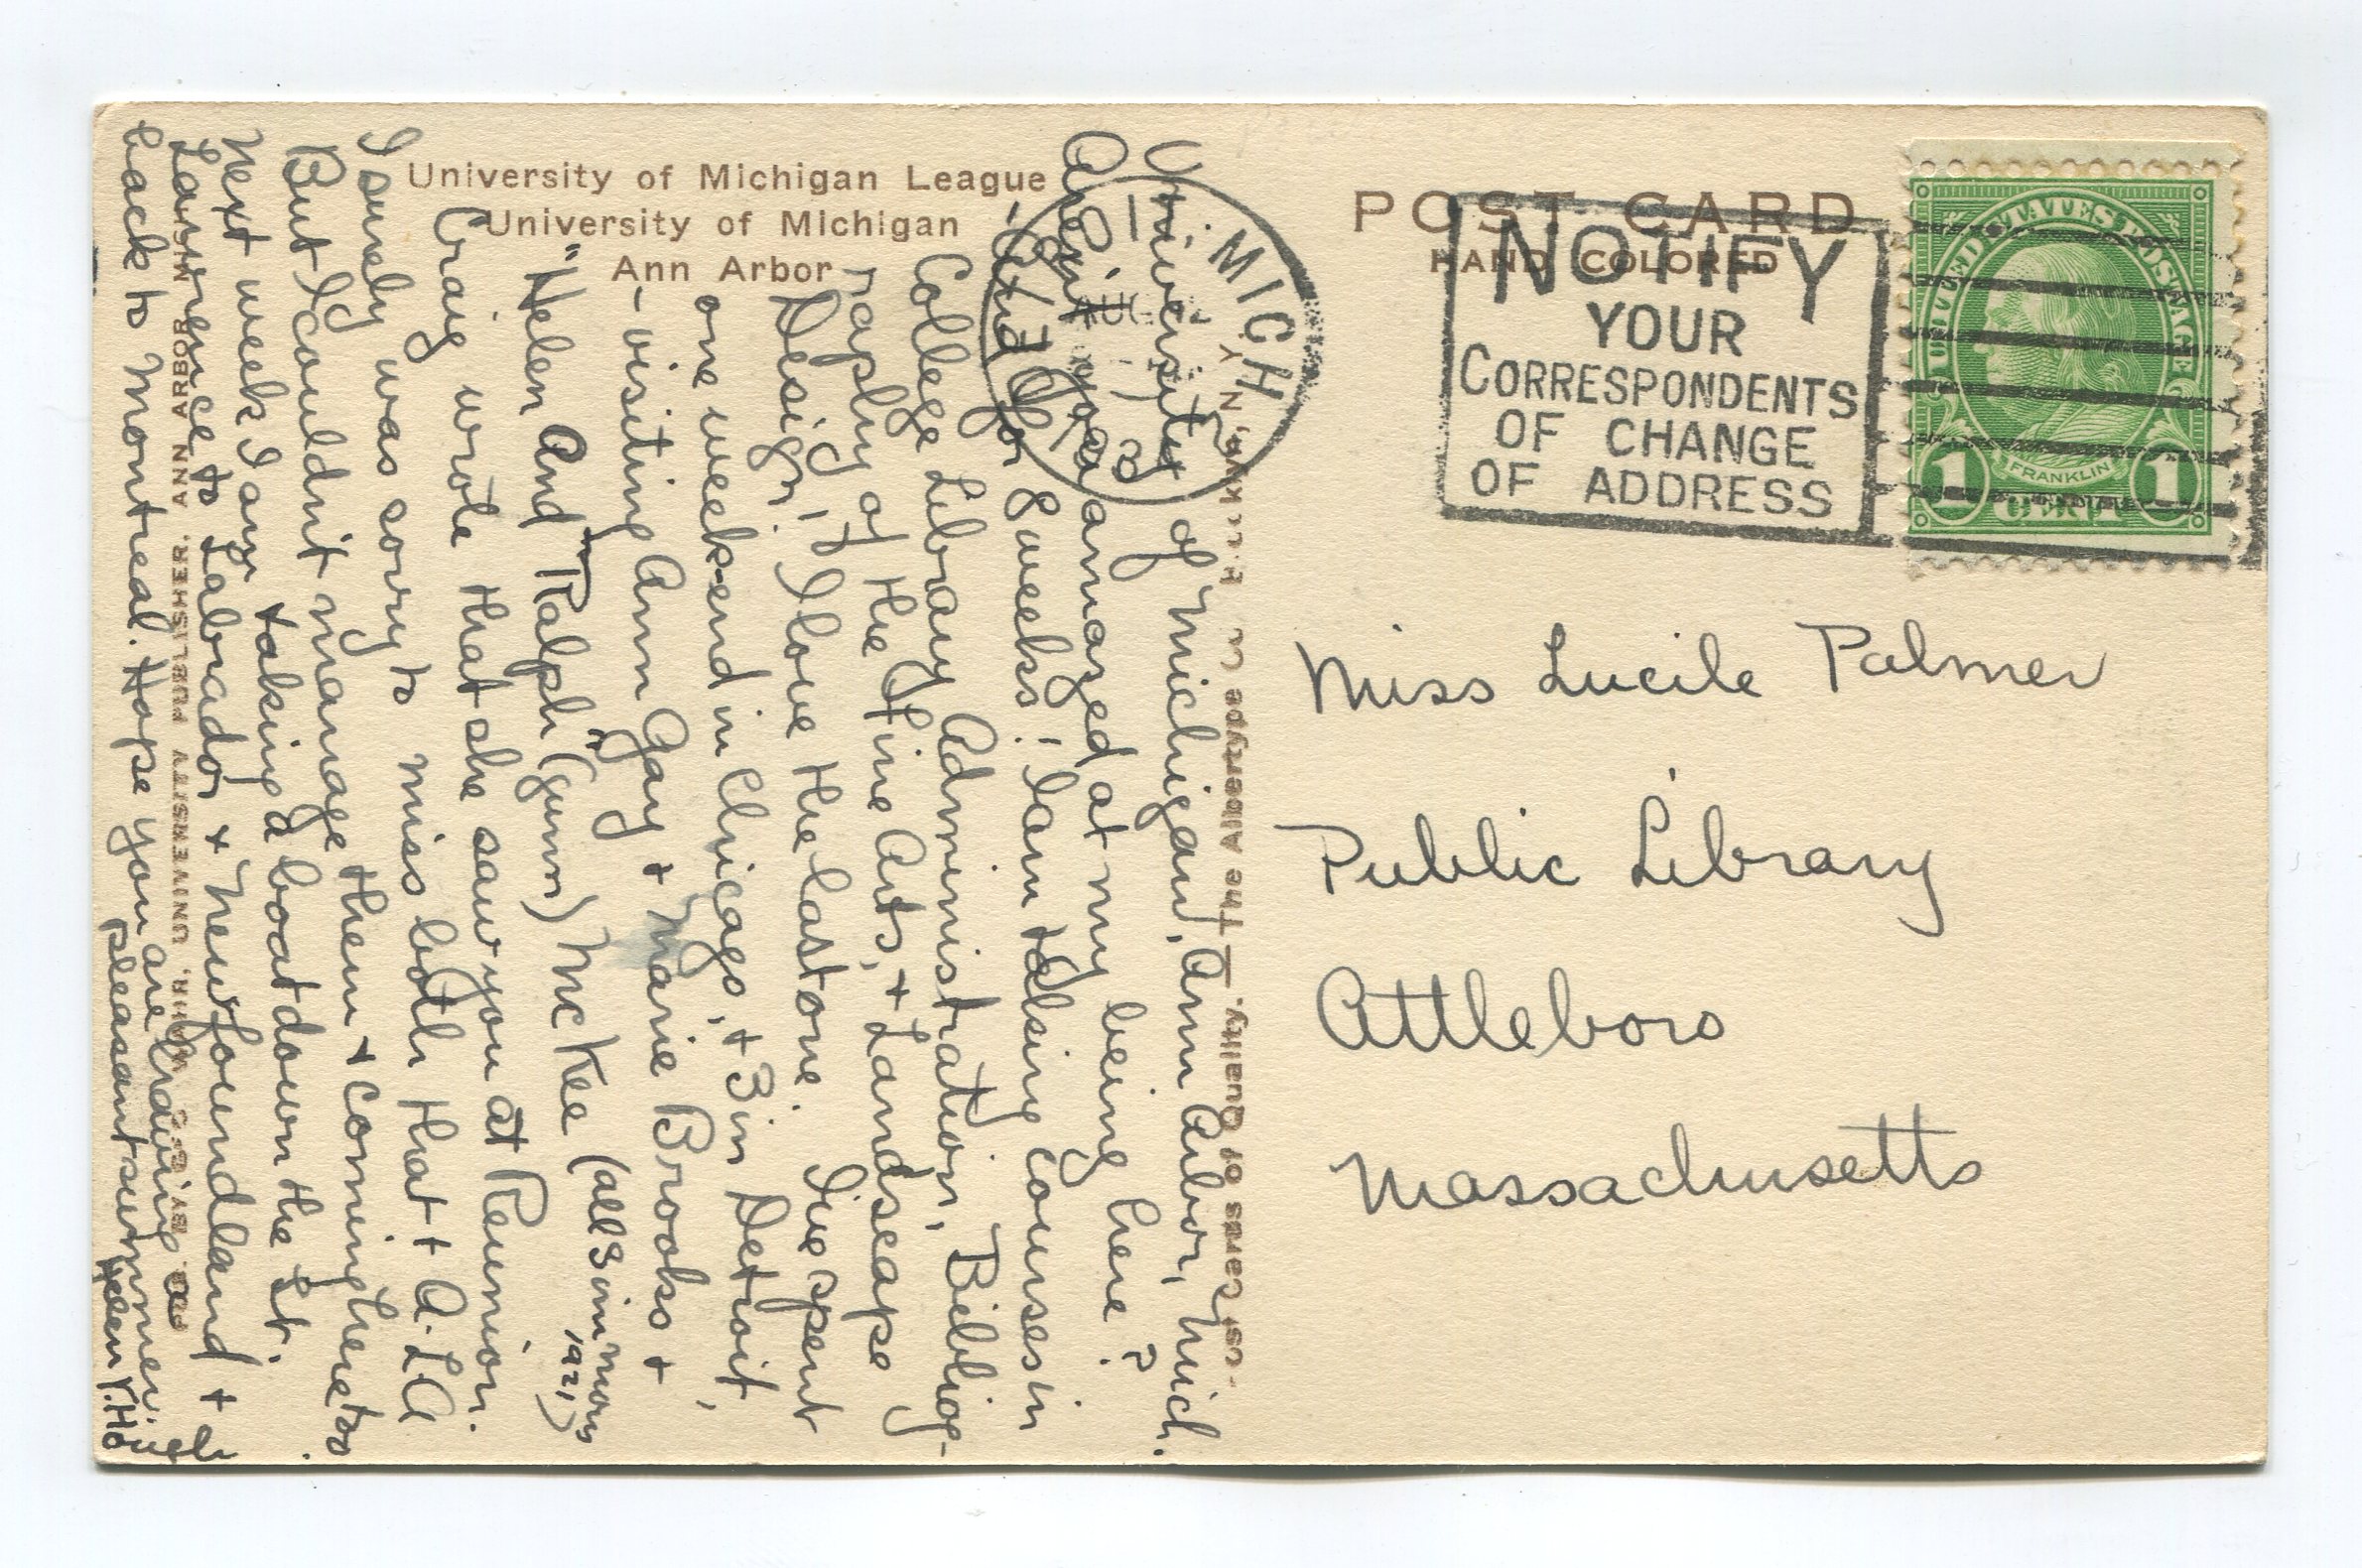 University of Michigan League
University of Michigan
Ann Arbor
POST CARD
HAND COLORED
MICH
NOTIFY
YOUR
CORRESPONDENTS
OF CHANGE
OF ADDRESS
UNITED STATES POSTAGE
FRANKLIN
1 CENT 1
University of Michigan, Ann Arbor, Mich.
Aren't you amazed at my being here?
And for 8 weeks! I am taking courses in
College Library Administration, Bibliog-
raphy of the Fine Arts, + Landscape
Design! I love the last one. I've spent
one week-end in Chicago, + 3 in Detroit,
- visiting Ann Gay + Marie Brooks +
"Helen And Ralph" (Gunn) McKee (all 3 in
1921)
Craig wrote that she saw you at Reunion.
I surely was sorry to miss both that + A.L.A
But I couldn't manage them + coming here too.
Next week I am taking a boat down the St.
Lawrence to Labrador + Newfoundland +
back to Montreal. Hope you are having a
pleasant summer.
Helen
Miss Lucile Palmer
Public Library
Attleboro
Massachusetts
Post Cards of Quality. — The Albertype Co.
WAHR, UNIVERSITY PUBLISHER, ANN ARBOR, MICH.